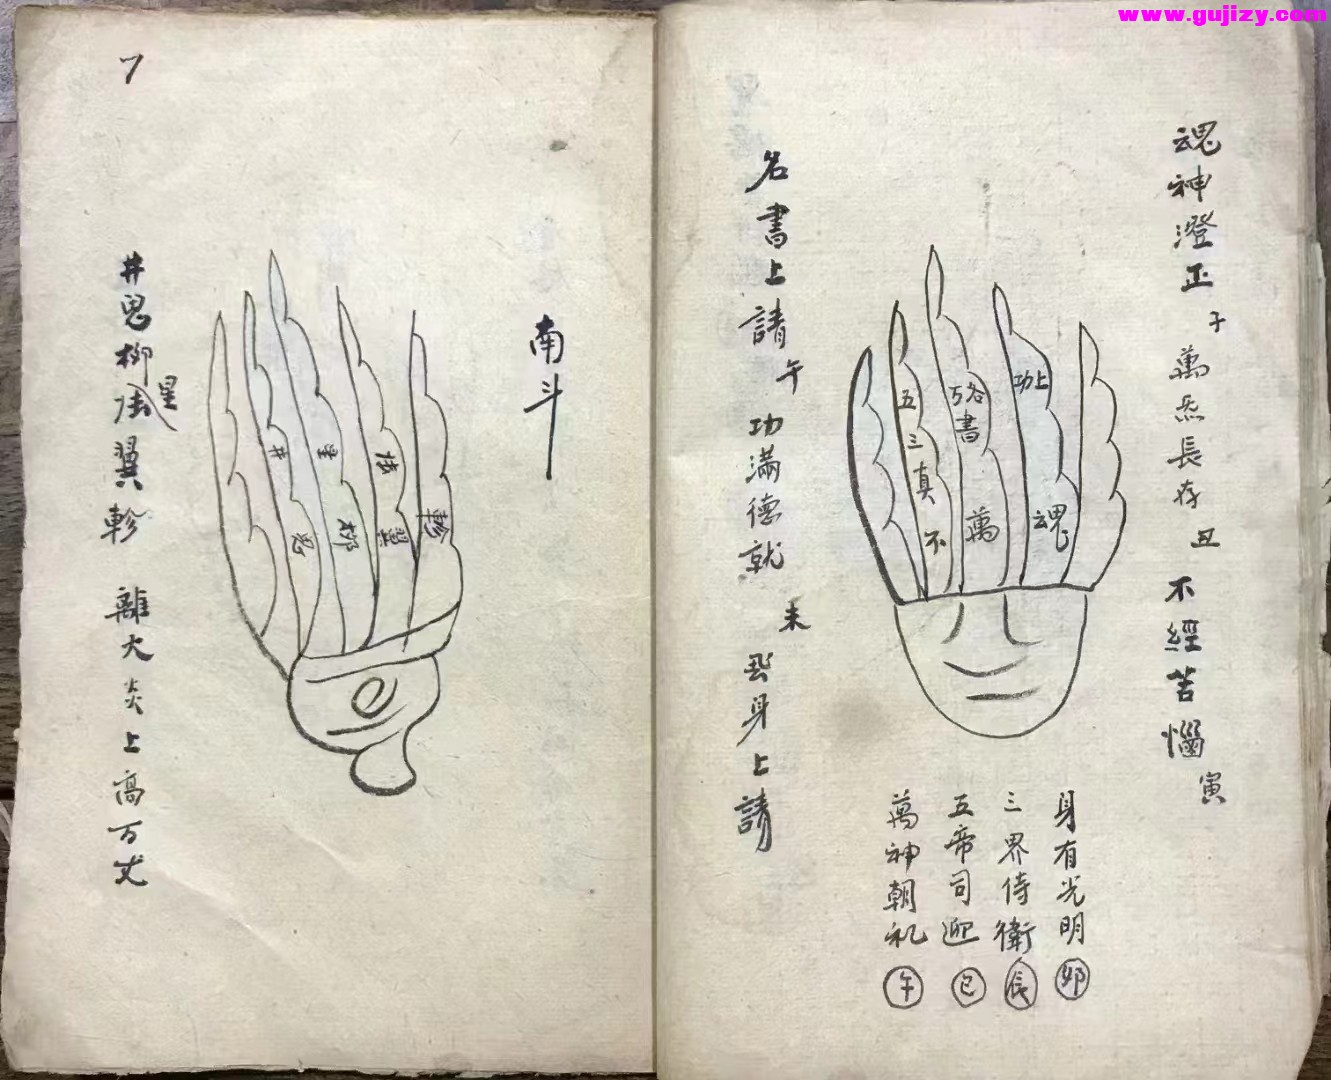 www.gujizy.com
魂神澄正 子 萬炁長存 丑 不經苦惱 寅
身有光明 卯
三界侍衛 辰
五帝司迎 巳
萬神朝礼 午
上功
魂
名書
萬
五三真不
名書上請 午 功滿德就 未 飛身上請
南斗
軫
翼
柳
星
鬼
井
井鬼柳星張翼軫 離火炎上高万丈
7